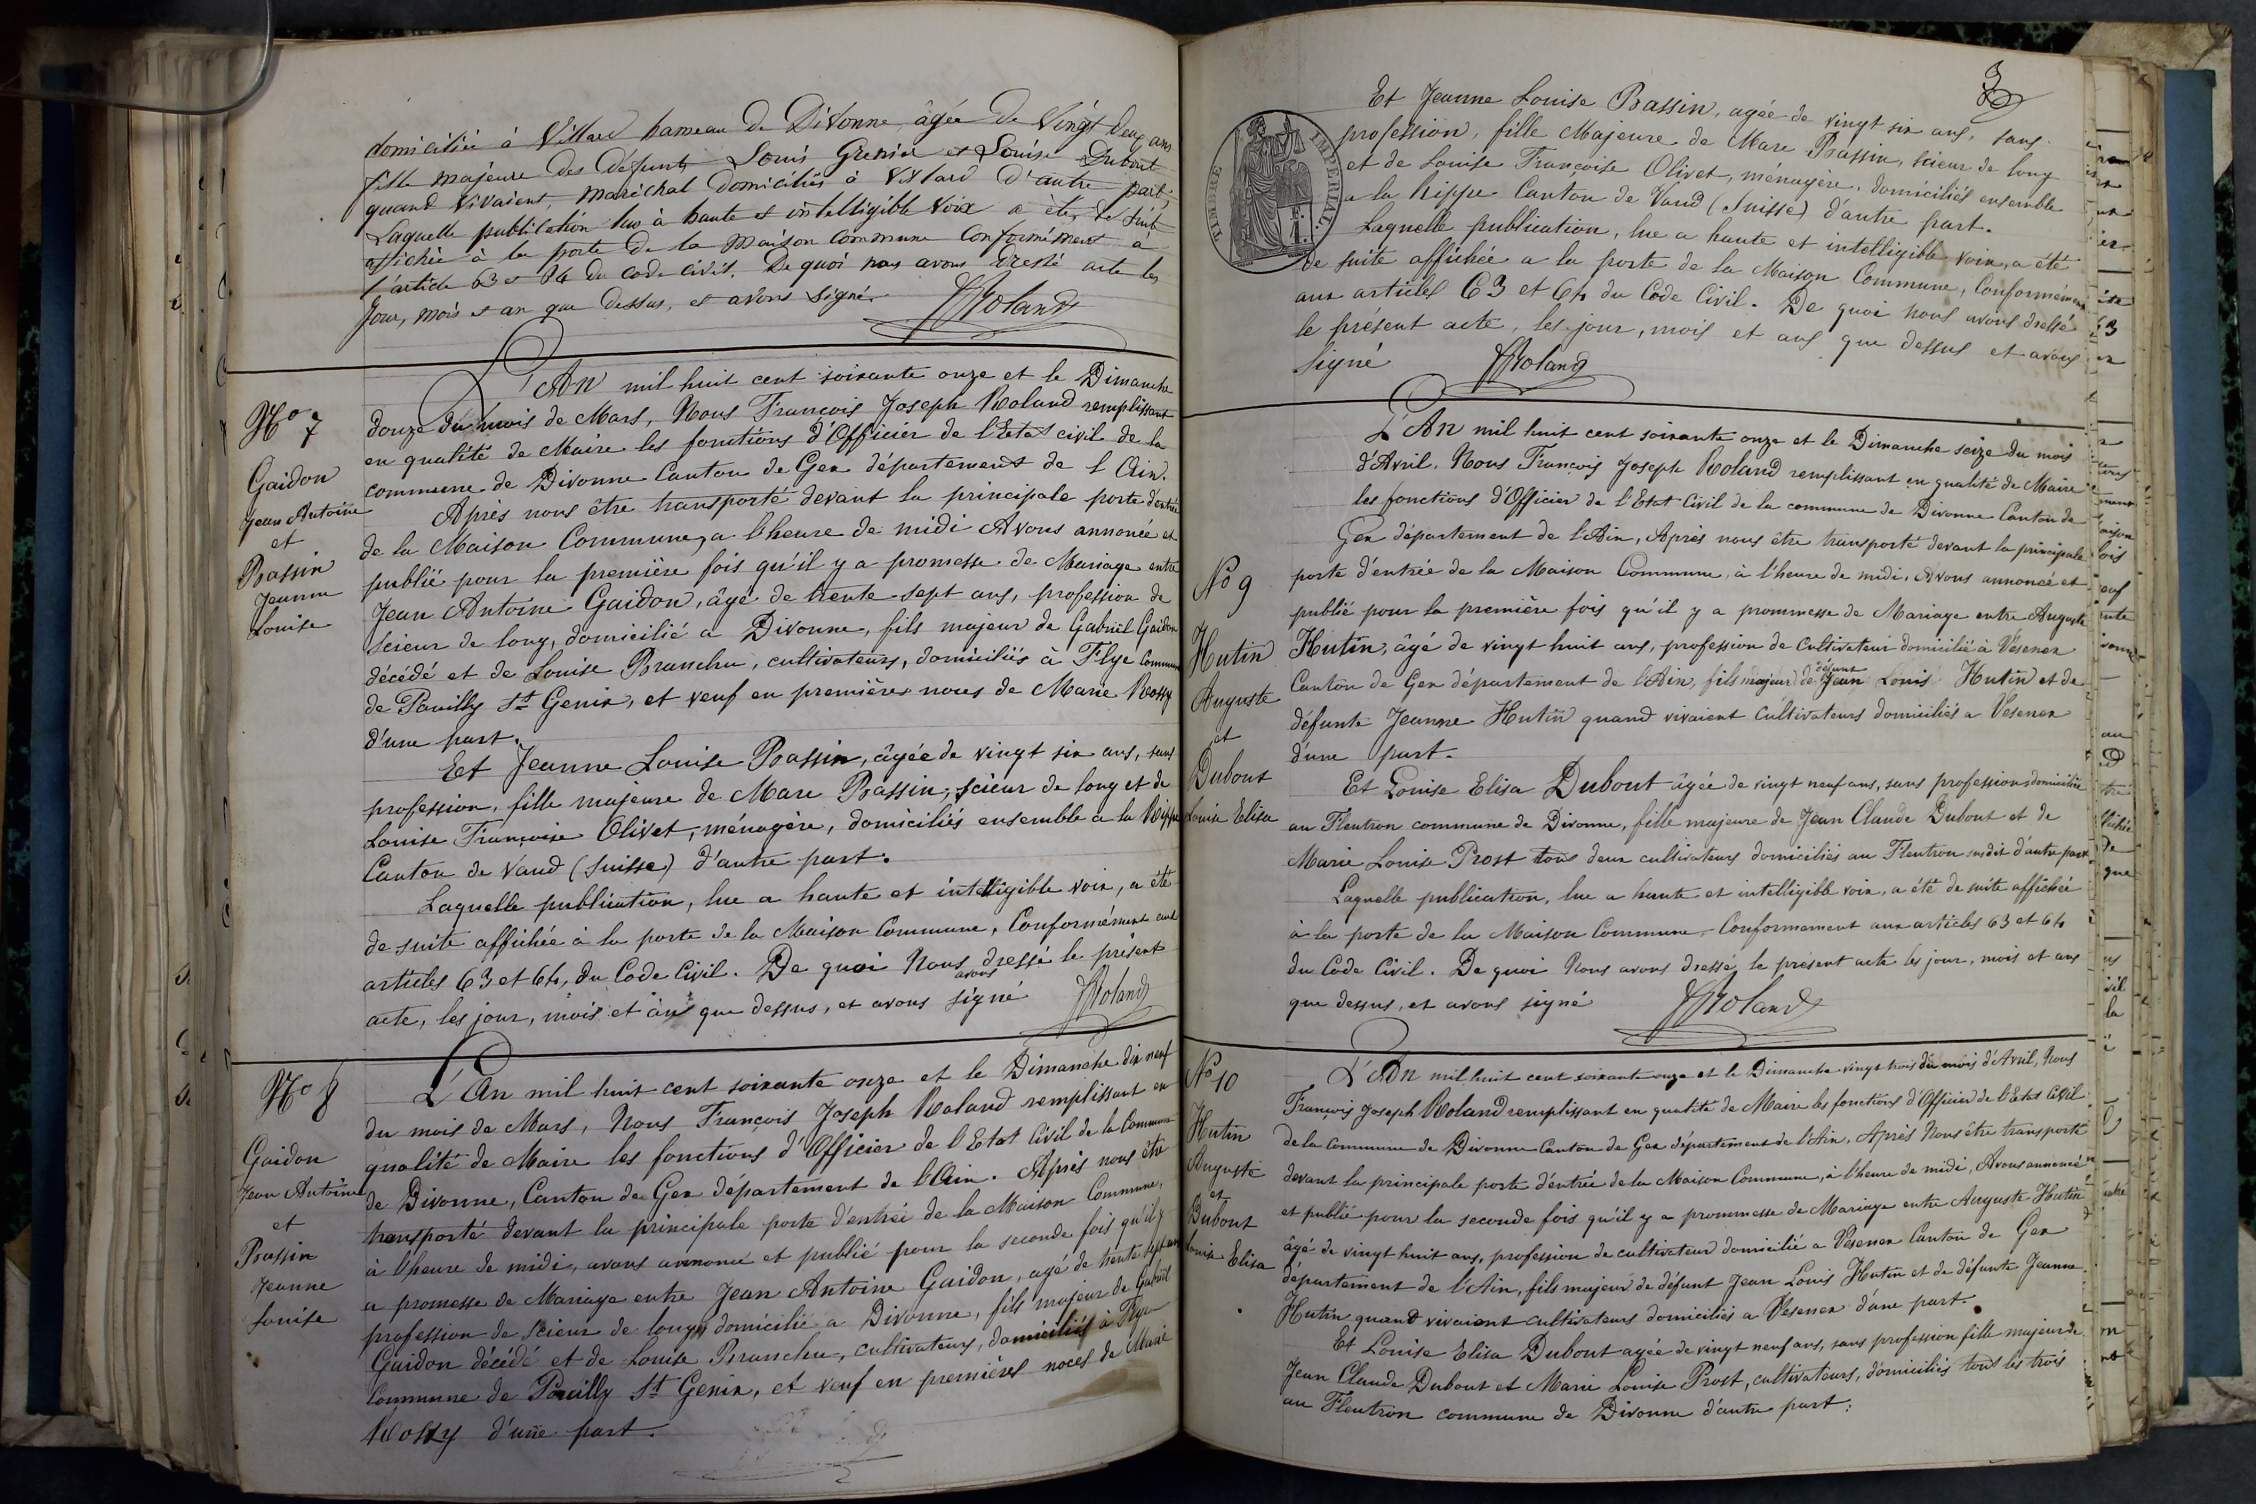 domiciliée à Villard hameau de Divonne, âgée de Vingt deux ans
fille majeure des défunts Louis Grenier et Louise Dubout
quand vivaient, maréchal domiciliés à Villard d'autre part,
Laquelle publication lue à haute et intelligible voix a été de suite
affichée à la porte de la maison commune conformément à
l'article 63 et 64 du code civil. De quoi nous avons dressé acte les
jour, mois et an que dessus, et avons signé.
FJRoland
No 7
Gaidon
Jean Antoine
et
Bassin
Jeanne
Louise
L'An mil huit cent soixante onze et le Dimanche
douze du mois de Mars, Nous François Joseph Roland remplissant
en qualité de Maire les fonctions d'Officier de l'Etat civil de la
commune de Divonne Canton de Gex département de l'Ain.
Après nous être transporté devant la principale porte d'entrée
de la Maison Commune, a l'heure de midi Avons annoncée et
publié pour la première fois qu'il y a promesse de Mariage entre
Jean Antoine Gaidon, âgé de trente sept ans, profession de
scieur de long, domicilié a Divonne, fils majeur de Gabriel Gaidon
décédé et de Louise Branchu, cultivateurs, domiciliés à Flye Commune
de Pouilly St Genix, et veuf en premières noces de Marie Rossy
d'une part.
Et Jeanne Louise Bassin, âgée de vingt six ans, sans
profession, fille majeure de Marc Bassin, scieur de long et de
Louise Françoise Olivet, ménagère, domiciliés ensemble a la Rippe
Canton de Vaud (Suisse) d'autre part.
Laquelle publication, lue a haute et intelligible voix, a été
de suite affichée à la porte de la Maison Commune, Conformément aux
articles 63 et 64, du Code Civil. De quoi Nous avons dressé le présent
acte, les jour, mois et an que dessus, et avons signé FJRoland
No 8
Gaidon
Jean Antoine
et
Bassin
Jeanne
Louise
L'An mil huit cent soixante onze et le Dimanche dix neuf
du mois de Mars, Nous François Joseph Roland remplissant en
qualité de Maire les fonctions d'Officier de l'Etat Civil de la Commune
de Divonne, Canton de Gex département de l'Ain. Après nous être
transporté devant la principale porte d'entrée de la Maison Commune,
à l'heure de midi, avons annoncé et publié pour la seconde fois qu'il y
a promesse de Mariage entre Jean Antoine Gaidon, agé de trente sept ans
profession de scieur de long, domicilié a Divonne, fils majeur de Gabriel
Gaidon décédé et de Louise Branchu, cultivateurs, domiciliés à Flye
Commune de Pouilly St Genix, et veuf en premières noces de Marie
Rossy d'une part.
3
TIMBRE IMPERIAL
Et Jeanne Louise Bassin, agée de vingt six ans, sans
profession, fille Majeure de Marc Bassin, scieur de long
et de Louise Françoise Olivet, ménagère, domiciliés ensemble
a la Rippe Canton de Vaud (Suisse) d'autre part.
Laquelle publication, lue a haute et intelligible voix, a été
de suite affichée a la porte de la Maison Commune, Conformément
aux articles 63 et 64 du Code Civil. De quoi nous avons dressé
le présent acte, les jour, mois et ans que dessus et avons
signé FJRoland
No 9
Hutin
Auguste
et
Dubout
Louise Elisa
L'An mil huit cent soixante onze et le Dimanche seize du mois
d'Avril. Nous François Joseph Roland remplissant en qualité de Maire
les fonctions d'Officier de l'Etat Civil de la commune de Divonne Canton de
Gex département de l'Ain, Après nous être transporté devant la principale
porte d'entrée de la Maison Commune, à l'heure de midi, Avons annoncé et
publié pour la première fois qu'il y a prommesse de Mariage entre Auguste
Hutin, âgé de vingt huit ans, profession de Cultivateur domicilié à Vesenex
Canton de Gex département de l'Ain, fils majeur de défunt Jean Louis Hutin et de
défunte Jeanne Hutin quand vivaient Cultivateurs domiciliés a Vesenex
d'une part.
Et Louise Elisa Dubout âgée de vingt neuf ans, sans profession domiciliée
au Fleutron commune de Divonne, fille majeure de Jean Claude Dubout et de
Marie Louise Prost tous deux cultivateurs domiciliés au Fleutron susdit d'autre part
Laquelle publication, lue a haute et intelligible voix, a été de suite affichée
à la porte de la Maison Commune Conformement aux articles 63 et 64
du Code Civil. De quoi Nous avons dressé le présent acte les jour, mois et ans
que dessus, et avons signé FJRoland
No 10
Hutin
Auguste
et
Dubout
Louise Elisa
L'An mil huit cent soixante onze et le Dimanche vingt trois du mois d'Avril, Nous
François Joseph Roland remplissant en qualité de Maire les fonctions d'Officier de l'Etat Civil
de la Commune de Divonne Canton de Gex département de l'Ain. Après Nous être transporté
devant la principale porte d'entrée de la Maison Commune, à l'heure de midi, Avons annoncé
et publié pour la seconde fois qu'il y a prommesse de Mariage entre Auguste Hutin
âgé de vingt huit ans, profession de cultivateur domicilié a Vesenex Canton de Gex
département de l'Ain, fils majeur de défunt Jean Louis Hutin et de défunte Jeanne
Hutin quand vivaient cultivateurs domiciliés a Vesenex d'une part.
Et Louise Elisa Dubout agée de vingt neuf ans, sans profession fille majeur de
Jean Claude Dubout et Marie Louise Prost, cultivateurs, domiciliés tous les trois
au Fleutron commune de Divonne d'autre part.